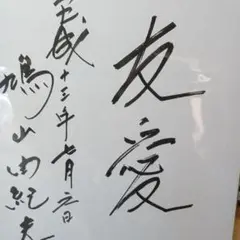 友愛
平成十三年七月六日
鳩山由紀夫